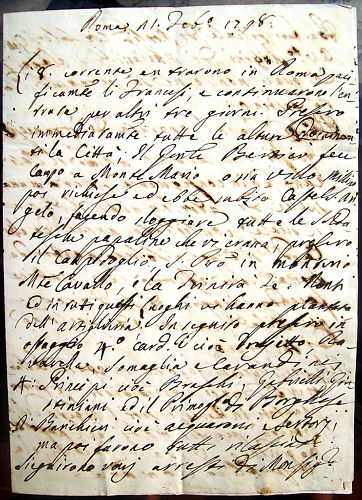 Roma 11. Feb.º 1798.
18. corrente entrarono in Roma paci
ficamte li Francesi, e continuarono l'en
trata per altri tre giorni. Presero
immediatamte tutte le alture dominan
ti la Città; Il Genle Bertier fece
Campo a Monte Mario o sia villa Millini
poi richiese ed ebbe subito Castel S. An
gelo, facendo sloggiare tutte le Solda
tesche papaline che vi erano, presero
il Campidoglio, S. in
Mte Cavallo, e la Trinità de Monti
ed in tutti questi luoghi vi hanno piantato
dell'artiglieria. In seguito presero in
ostaggio 4.º Card.li cioè
Somaglia e Carandini,
4. Principi cioè Braschi, Gabrielli, Giu
stiniani ed il Primog.to di Borghese
Banchieri cioè Acquaroni e
ma poi furono tutti rilasciati
Seguirono varj arresti di Monsig.r